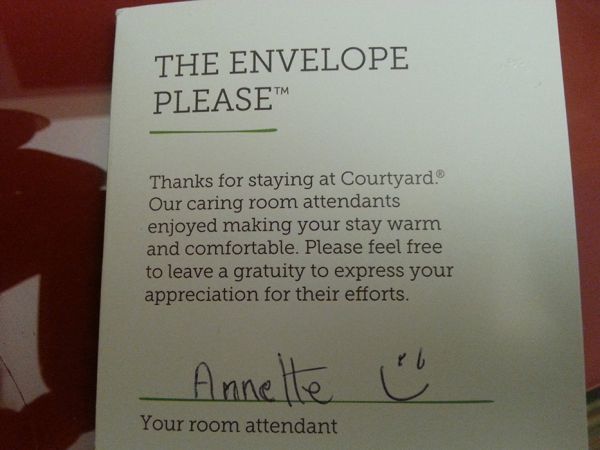 THE ENVELOPE
PLEASE™
Thanks for staying at Courtyard.®
Our caring room attendants
enjoyed making your stay warm
and comfortable. Please feel free
to leave a gratuity to express your
appreciation for their efforts.
Annette
Your room attendant